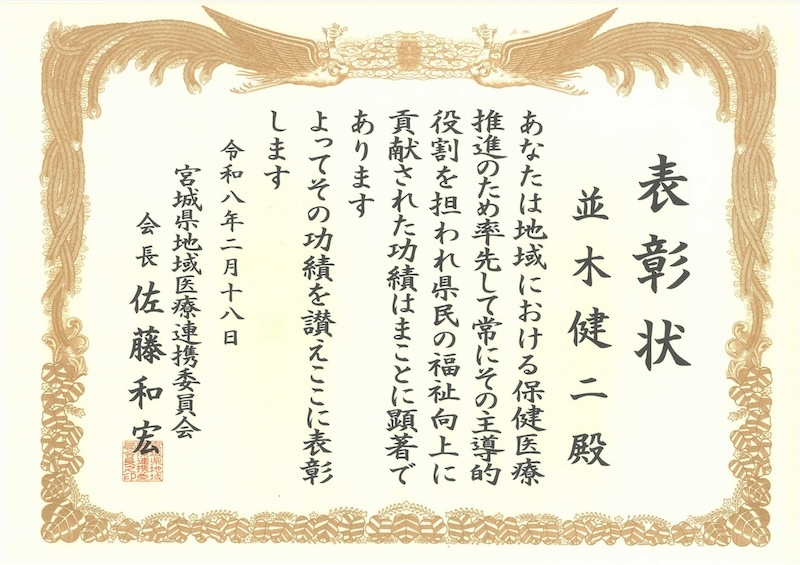 表彰状
並木健二殿
あなたは地域における保健医療
推進のため率先して常にその主導的
役割を担われ県民の福祉向上に
貢献された功績はまことに顕著で
あります
よってその功績を讃えここに表彰
します
令和八年二月十八日
宮城県地域医療連携委員会
会長 佐藤和宏